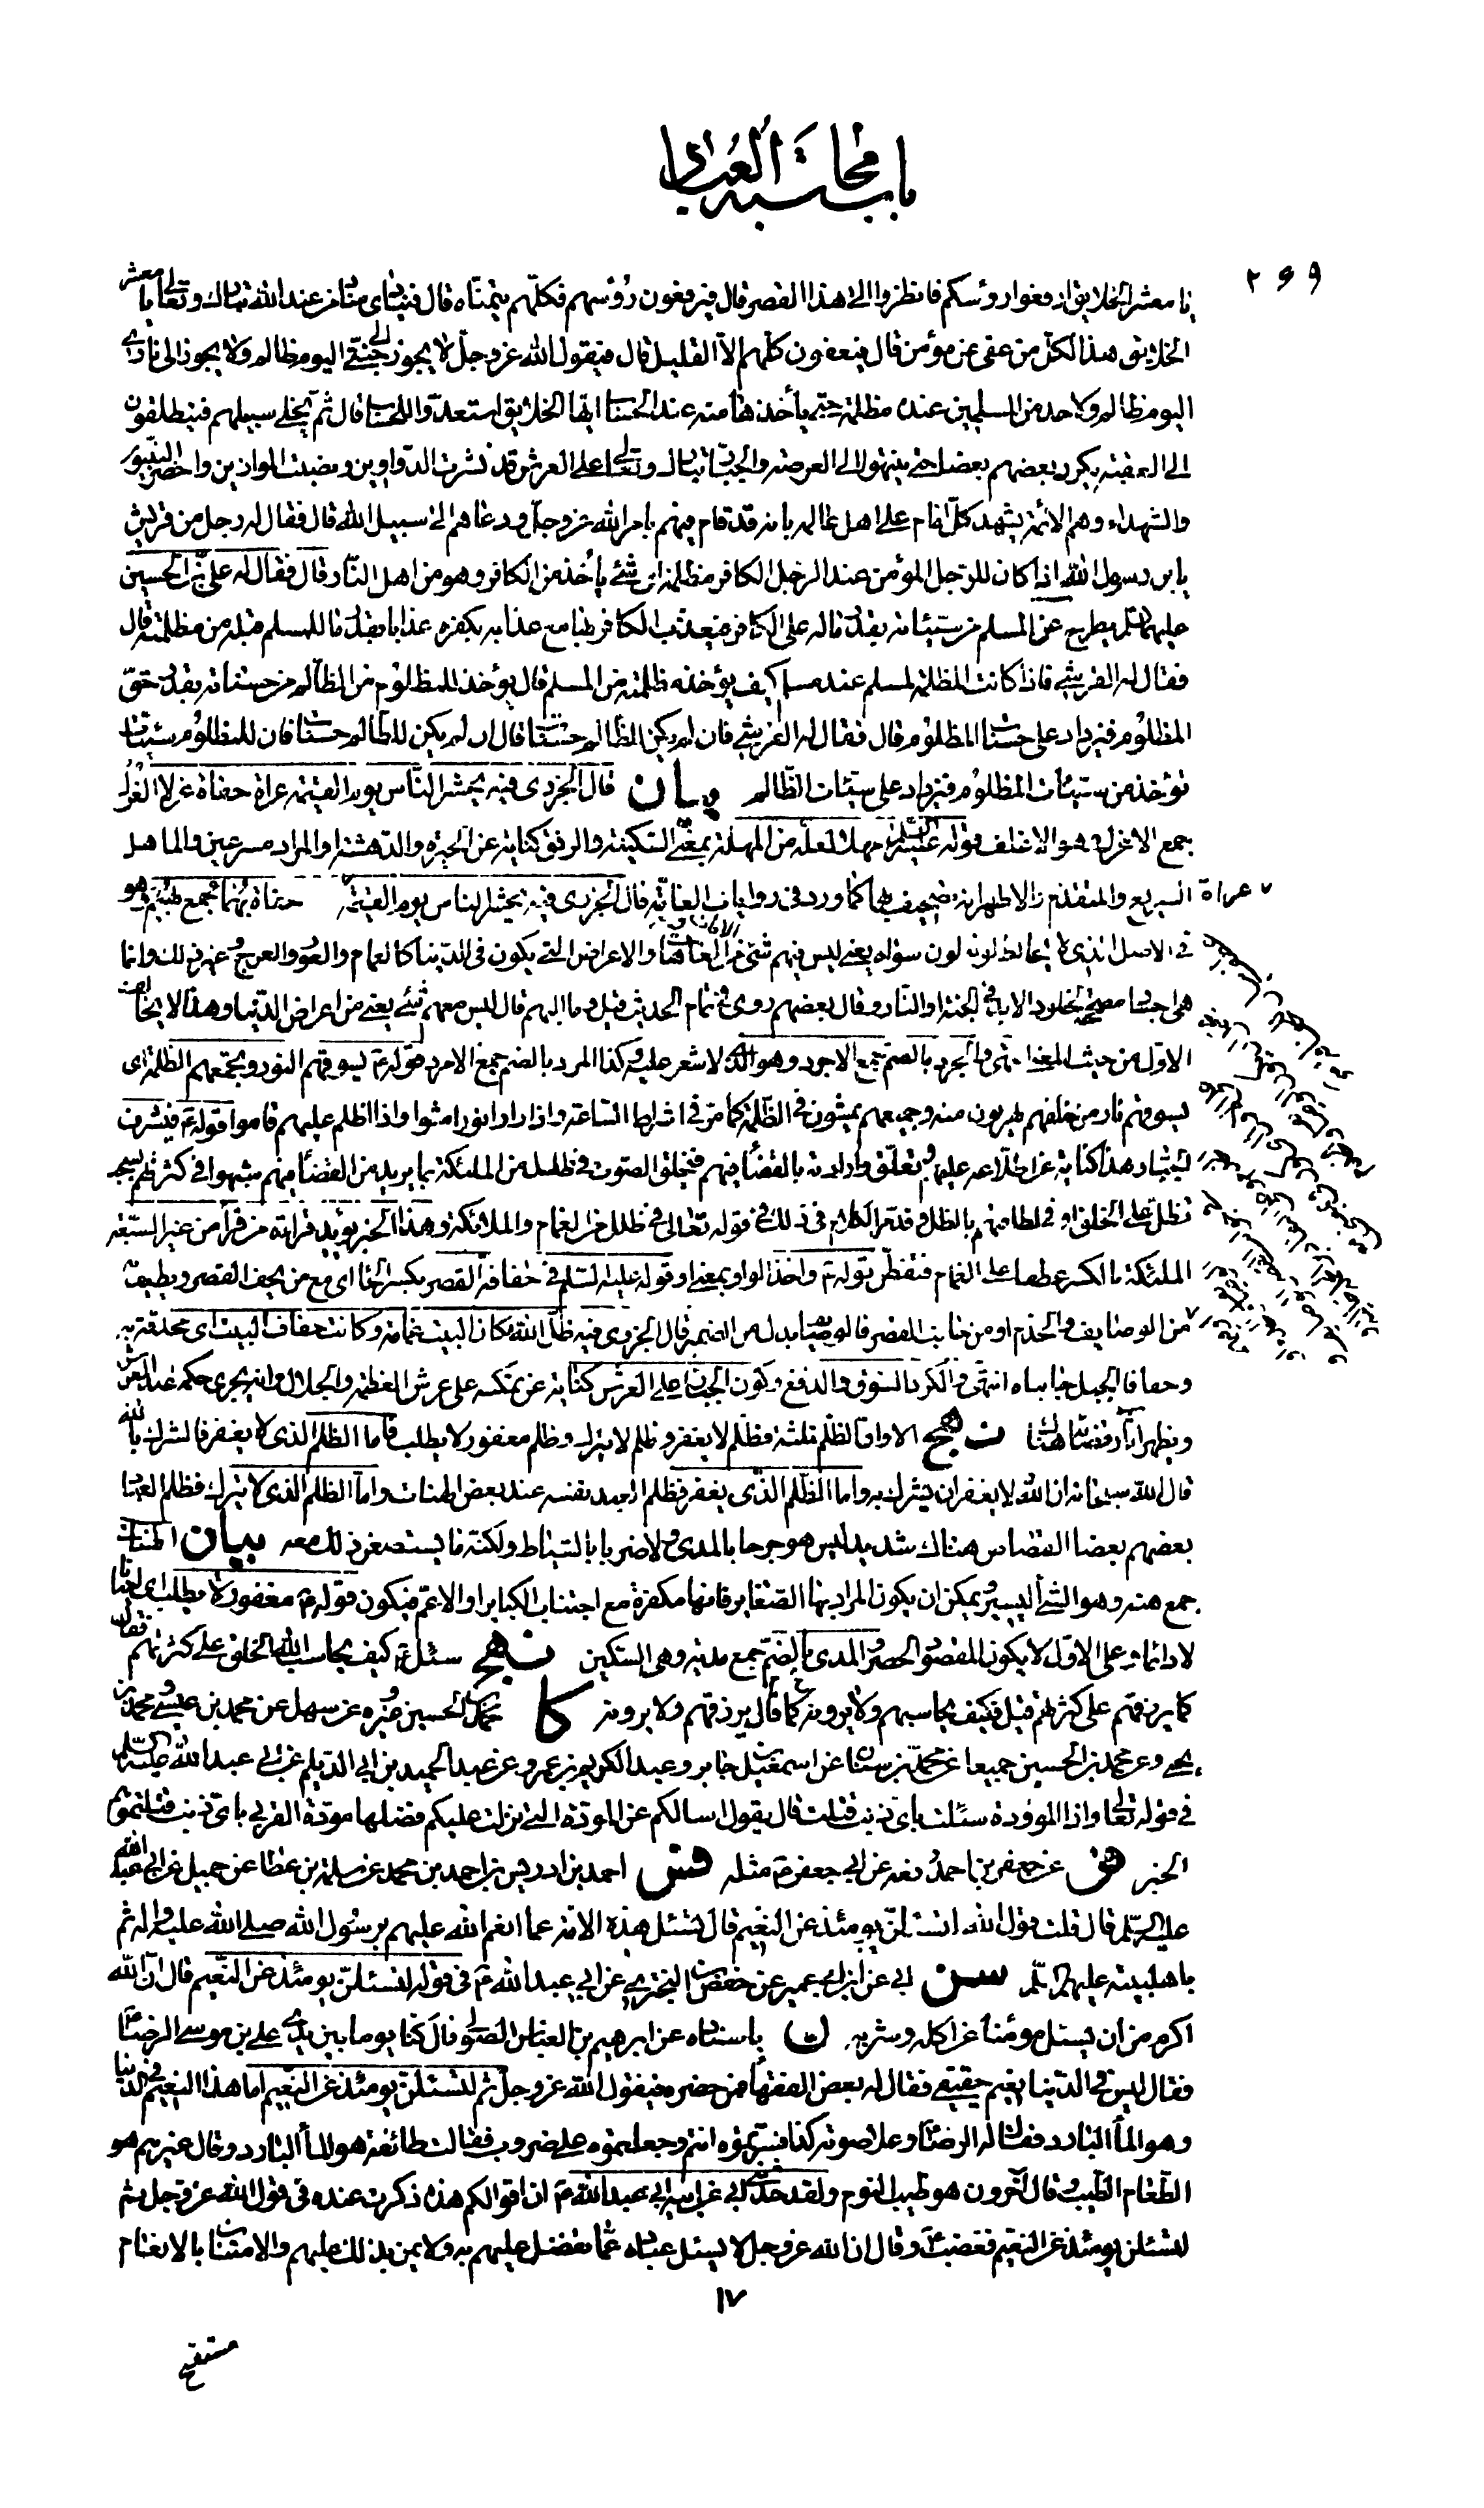 باب محاسبة العباد
٢٦٩
يا معشر الخلايق ارفعوا رؤسكم فانظروا الى هذا القصر قال فيرفعون رؤسهم فكلهم يتمناه قال فينادي مناد من عند الله تبارك وتعالى يا معشر
الخلايق هذا لكل من عفى عن مؤمن قال فيعفون كلهم الا القليل قال فيقول الله عز وجل لا يجوز الى جنتي اليوم ظالم ولا يجوز الى ناري
اليوم ظالم ولاحد من المسلمين عنده مظلمة حتى يأخذها منه عند الحساب ايها الخلايق استعدوا للحساب قال ثم يخلى سبيلهم فينطلقون
الى العقبة يكرد بعضهم بعضا حتى ينتهوا الى العرصة والجبار تبارك وتعالى على العرش قد نشرت الدواوين ونصبت الموازين واحضر النبيون
والشهداء وهم الائمة يشهد كل امام على اهل عالمه بانه قد قام فيهم بامر الله عز وجل ودعاهم الى سبيل الله قال فقال له رجل من قريش
يابن رسول الله اذا كان للرجل المؤمن عند الرجل الكافر مظلمة اي شئ يأخذ من الكافر وهو من اهل النار قال فقال له علي بن الحسين
عليهما السلم يطرح عن المسلم من سيئاته بقدر ماله على الكافر فيعذب الكافر بها مع عذابه بكفره عذابا بقدر ما للمسلم قبله من مظلمته قال
فقال له القرشي فاذا كانت المظلمة لمسلم عند مسلم كيف يؤخذ مظلمته من المسلم قال يؤخذ للمظلوم من الظالم من حسناته بقدر حق
المظلوم فيزاد على حسنات المظلوم قال فقال له القرشي فان لم يكن للظالم حسنات قال ان لم يكن للظالم حسنات فان للمظلوم سيئات
تؤخذ من سيئات المظلوم فيزاد على سيئات الظالم بيان قال الجزري فيه يحشر الناس يوم القيمة عراة حفاة غرلا الغرل
جمع الاغرل وهو الاغلف قوله عليه السلام مهلا لعله من المهلة بمعنى السكينة والرفق كناية عن الحيرة والدهشة او المراد مسرعين والماهل
السريع والمتقدم والاظهر انه تصحيف بهما كما ورد في روايات العامة قال الجزري فيه يحشر الناس يوم القيمة ٧ عراة حفاة بهما جمع بهيم وهو
في الاصل الذي لا يخالط لونه لون سواه يعني ليس فيهم شئ من العاهات والاعراض التي يكون في الدنيا كالعمى والعور والعرج وغير ذلك وانما
هي اجساد مصححة لخلود الابد في الجنة او النار وقال بعضهم روى في تمام الحديث قيل وما البهم قال ليس معهم شئ يعني من اعراض الدنيا وهذا لا يخالف
الاول من حيث المعنى انتهى والجرد بالضم جمع الاجرد وهو الذي لا شعر عليه وكذا المرد بالضم جمع الامرد قوله ع يسوقهم النور ويجمعهم الظلمة اي
يسوقهم نار من خلفهم يهربون منه وجميعهم يمشون في الظلمة كما مر في اشراط الساعة واذا راوا نورا مشوا واذا اظلم عليهم قاموا قوله ع فيشرف
الجبار هذا كناية عن اطلاعه عليهم وتعلق ارادته بالقضاء فيهم فيخلق الصوت في ظلل من الملئكة بما يريد من القضاء فيهم
الملئكة بالكسر عطفا على الغمام فتفطن قوله ع واخذ الواو بمعنى او قوله عليه السلم في حفافة القصر بكسر الحاء اي مع من يحف القصر ويطيف
من الوصايف والخدم او من جانب القصر فالوصيفة بدل من الضمير قال الجزري فيه ظلل الله مكان البيت غمامة وكانت حفاف البيت اي محدقة به
وحفافا الجبل جانباه انتهى والكرد السوق والدفع وكون الجبار على العرش كناية عن تمكنه على عرش العظمة والجلال وانه يجري حكمه عند العرش
ويظهر اثار قضائه هناك نهج الا وان الظلم ثلثة فظلم لا يغفر وظلم لا يترك وظلم مغفور لا يطلب فاما الظلم الذي لا يغفر فالشرك بالله
قال الله سبحانه ان الله لا يغفر ان يشرك به واما الظلم الذي يغفر فظلم العبد نفسه عند بعض الهنات واما الظلم الذي لا يترك فظلم العباد
بعضهم بعضا القصاص هناك شديد ليس هو جرحا بالمدى ولا ضربا بالسياط ولكنه ما يستصغر ذلك معه بيان الهنات
جمع هنة وهو الشئ اليسير ويمكن ان يكون المراد بها الصغاير فانها مكفرة مع اجتناب الكباير او الاعم فيكون قوله ع مغفور لا يطلب اي احيانا
لا دائما وعلى الاول لا يكون المقصود الحصر والمدى بالضم جمع مدية وهي السكين نهج سئل ع كيف يحاسب الله الخلق على كثرتهم فقال
كما يرزقهم على كثرتهم قيل فكيف يحاسبهم ولا يرونه قال ع كما يرزقهم ولا يرونه كا محمد بن الحسين وغيره عن سهل عن محمد بن عيسى ومحمد بن
يحيى وعن محمد بن الحسين جميعا عن محمد بن سنان عن اسمعيل بن جابر وعبد الكريم بن عمرو عن عبد الحميد بن ابي الديلم عن ابي عبد الله عليه السلم
في قوله تعالى واذا الموؤدة سئلت باي ذنب قتلت قال يقول اسالكم عن المودة التي نزلت عليكم فضلها مودة القربى باي ذنب قتلتموهم
الخبر فس عن جعفر بن احمد رفعه عن ابي جعفر ع مثله فس احمد بن ادريس عن احمد بن محمد عن سلمة بن عطا عن جميل عن ابي عبد الله
عليه السلم قال قلت قول الله لتسئلن يومئذ عن النعيم قال تسئل هذه الامة عما انعم الله عليهم برسول الله صلى الله عليه واله ثم
باهلبيته عليهم السلم سن ابي عن ابن ابي عمير عن حفص بن البختري عن ابي عبد الله ع في قوله لتسئلن يومئذ عن النعيم قال ان الله
اكرم من ان يسئل مؤمنا عن اكله وشربه ن باسناده عن ابرهيم بن العباس الصولي قال كنا يوما بين يدي علي بن موسى الرضا ع
فقال ليس في الدنيا نعيم حقيقي فقال له بعض الفقهاء ممن حضره فيقول الله عز وجل ثم لتسئلن يومئذ عن النعيم اما هذا النعيم في الدنيا
وهو الماء البارد فقال له الرضا ع وعلا صوته كذا فسرتموه انتم وجعلتموه على ضروب فقالت طائفة هو الماء البارد وقال غيرهم هو
الطعام الطيب وقال آخرون هو طيب النوم ولقد حدثني ابي عن ابيه ابي عبد الله ع ان اقوالكم هذه ذكرت عنده في قول الله عز وجل ثم
لتسئلن يومئذ عن النعيم فغضب ع وقال ان الله عز وجل لا يسئل عباده عما تفضل عليهم به ولا يمن بذلك عليهم والامتنان بالانعام
١٧
مستقبح